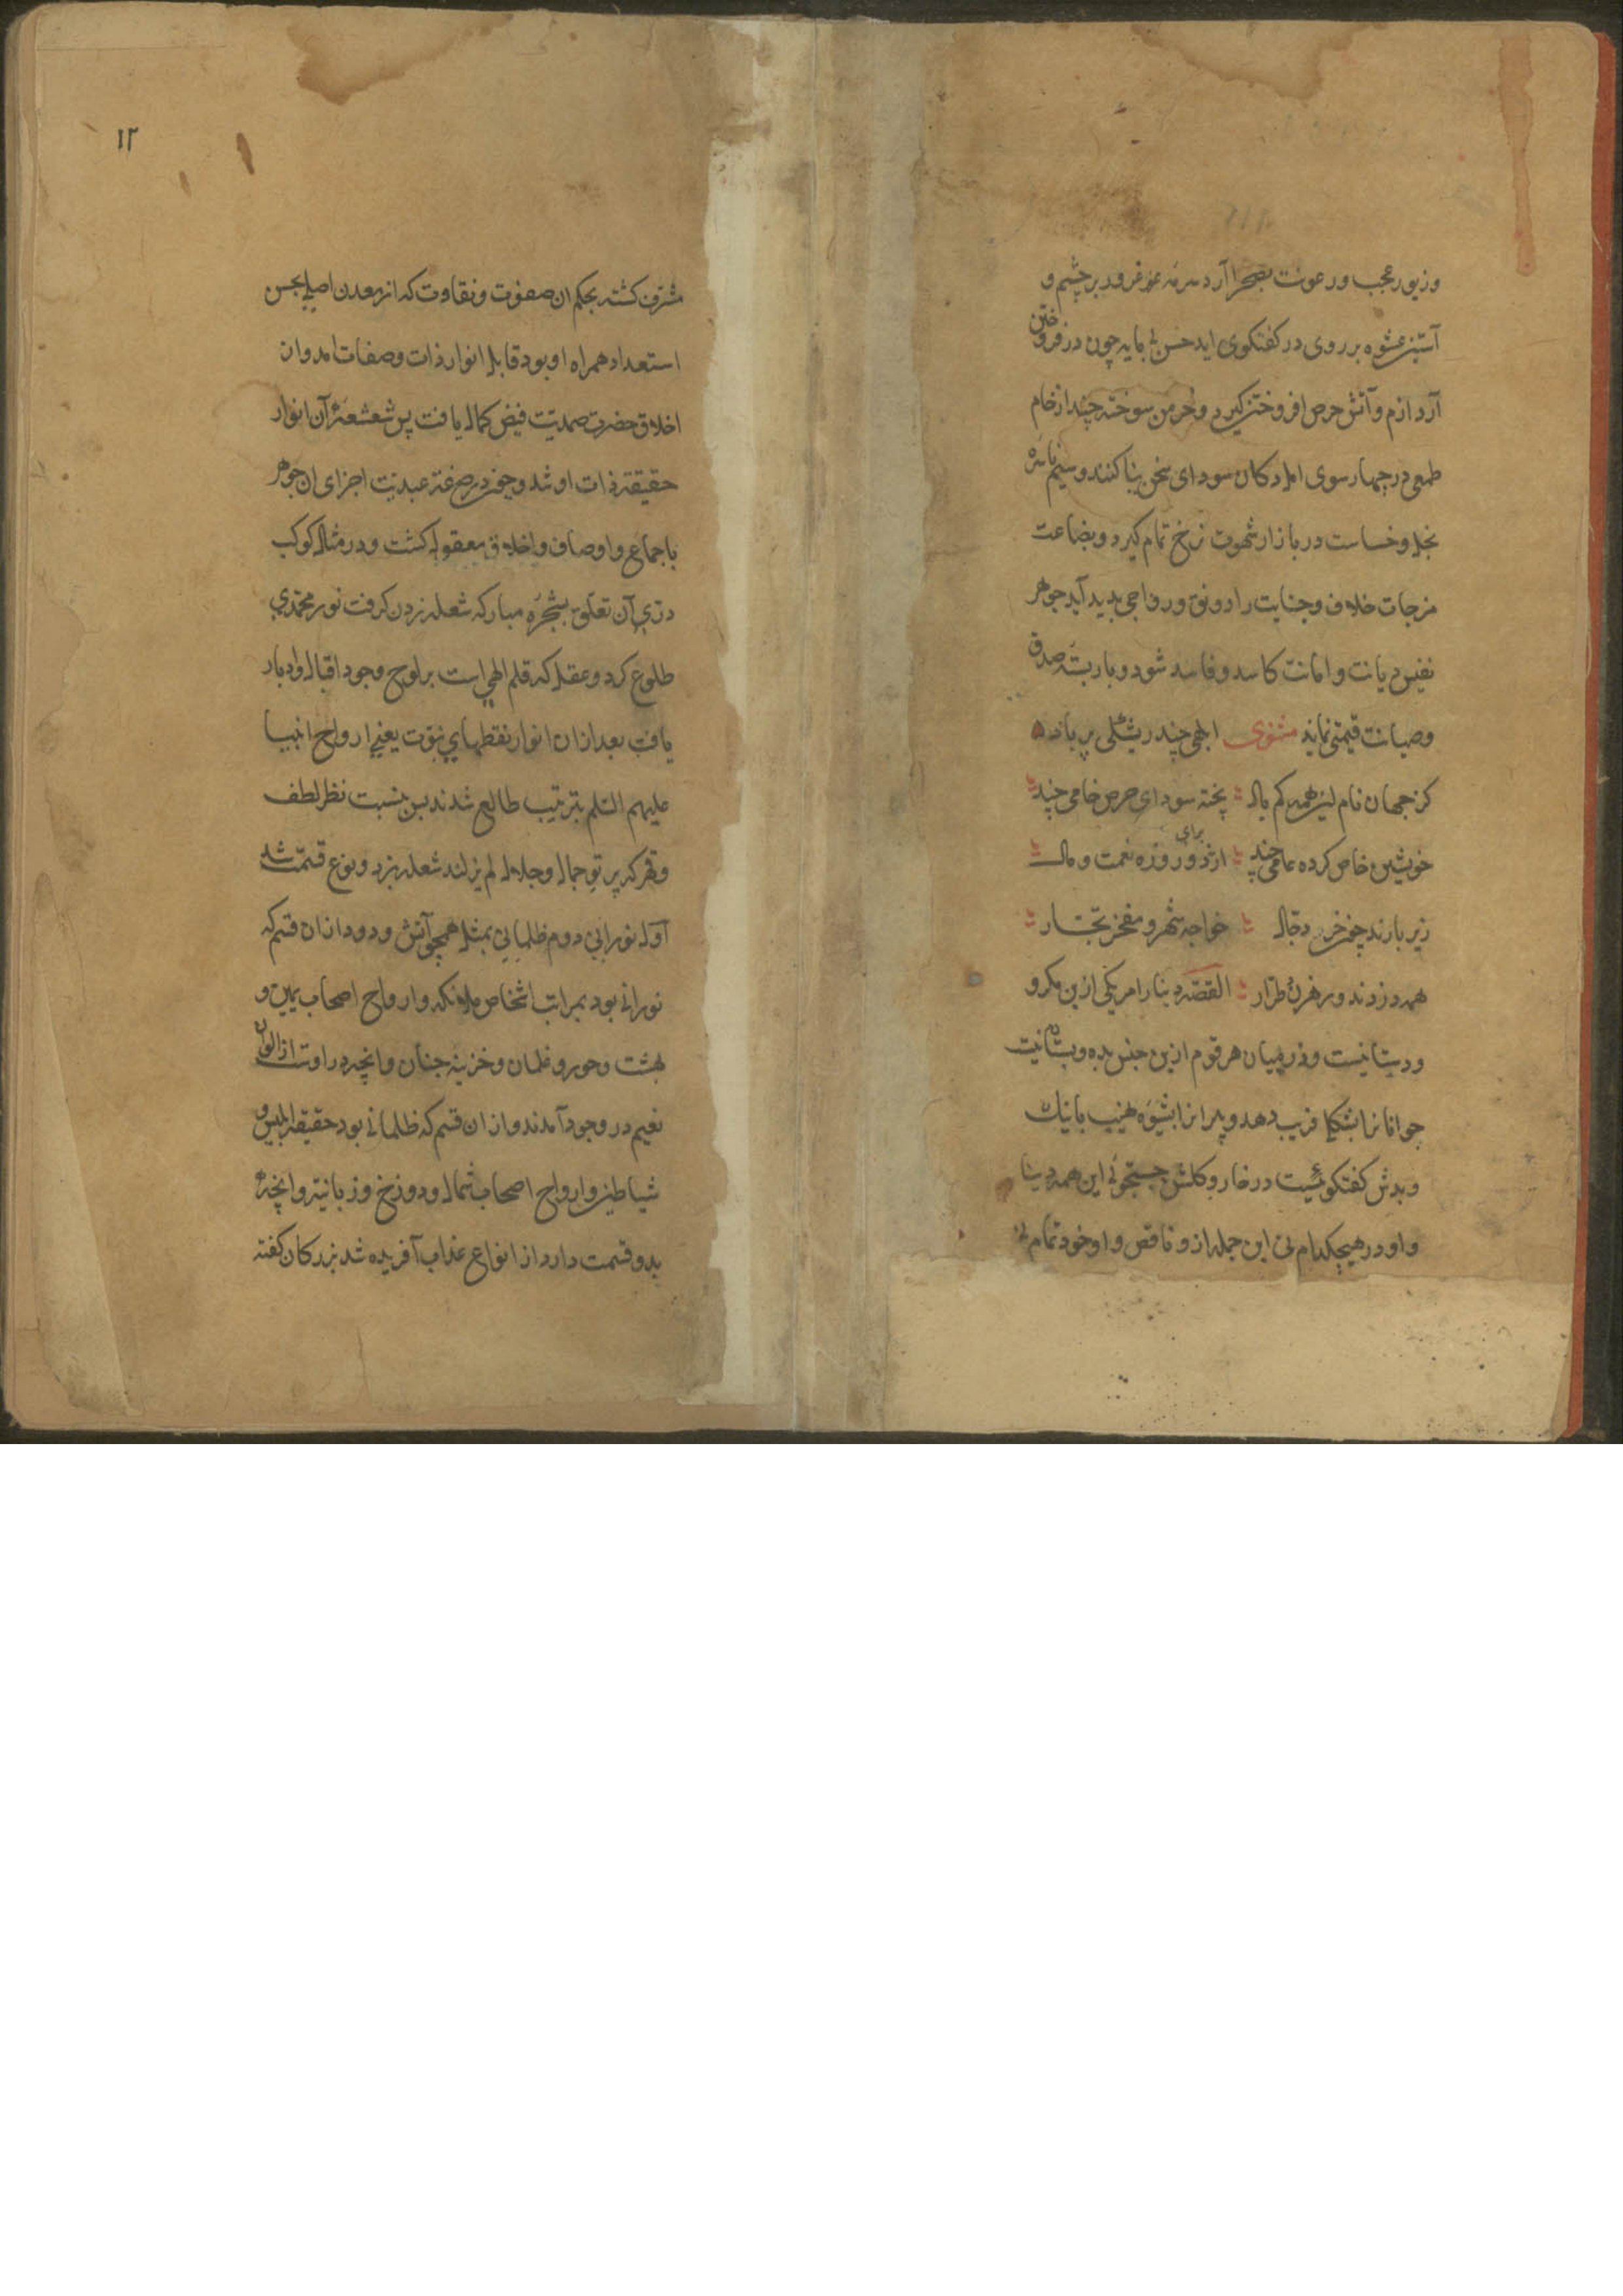 وزیور عجب ورعونت بصحرا آرد سرمه غرور بر چشم و
آستین عشوه بر روی در گفتگوی اید حسن بی مایه چون در فروختن
آرد ازم و آتش حرص افروختن گیرد و خرمن سوخته چند از خام
طمعی در چهار سوی امل دکان سودای سخن بنا کنند وسیم ناسره
بخل وخساست در بازار شهوت نرخ تمام گیرد و بضاعت
مزجات خلاف وجنایت را رونق ورواجی بدید آید جوهر
نفیس دیانت و امانت کاسد و فاسد شود و بار بسته صدق
وصیانت قیمتی نماند مثنوی ابلهی چند ریشکی پر باد
کز جهان نام لیز همه کم یال پخته سودای حرص خامی چند
خویشتن خاص کرده عامی چند از برای دو روزه نعمت و مال
زیر بارند چون خر دجال خواجه شهر و مفخر تجار
همه دزدند ورهزن طرار القصه دینار امریکی ازین مکر و
ودستانیست و در میان هر قوم ازین جنس بده وبستانیست
جوانانرا بشکلی فریب دهد و پیرانرا بشیوه نهیب با نیک
وبدش گفتگوئیست در خار و گلشن جستجوئی این همه دینا
و او در هیچکدام نی این جمله ازو ناقص و او خود تمام نی
۱۲
مشرف کشته بحکم ان صفوت ونقاوت که از معدن اصلی بحسن
استعداد همراه او بود قابل انوار ذات وصفات امد وان
اخلاق حضرت صمدیت فیض کمال یافت پس شعشعه آن انوار
حقیقة ذات او شد وچون در صبغة عبدیت اجزای ان جوهر
باجماع واوصاف واخلاق معقول کشت ودر مثال کوکب
دری آن تعلق بشجره مبارکه شعله زدن کرفت نور محمدی
طلوع کرد وعقل که قلم الهی است بر لوح وجود اقبال وادبار
یافت بعد ازان انوار نقطهای نبوت یعنی ارواح انبیا
علیهم السلم بترتیب طالع شدند پس بنسبت نظر لطف
وقهر که پرتو جمال وجلال لم یزلند شعله بزد ونوع قسمت شد
اول نورانی دوم ظلمانی بمثل همچو آتش ودود ازان قسم که
نورانی بود بمراتب اشخاص ملائکه وارواح اصحاب یمین و
بهشت وحور وغلمان وخزینه جنان وانچه دراوست از الوان
نعیم در وجود آمدند واز ان قسم که ظلمانی بود حقیقة ابلیس و
شیاطین وارواح اصحاب شمال ودوزخ وزبانیه وانچه
بدو قسمت دارد از انواع عذاب آفریده شد بزرکان کفته